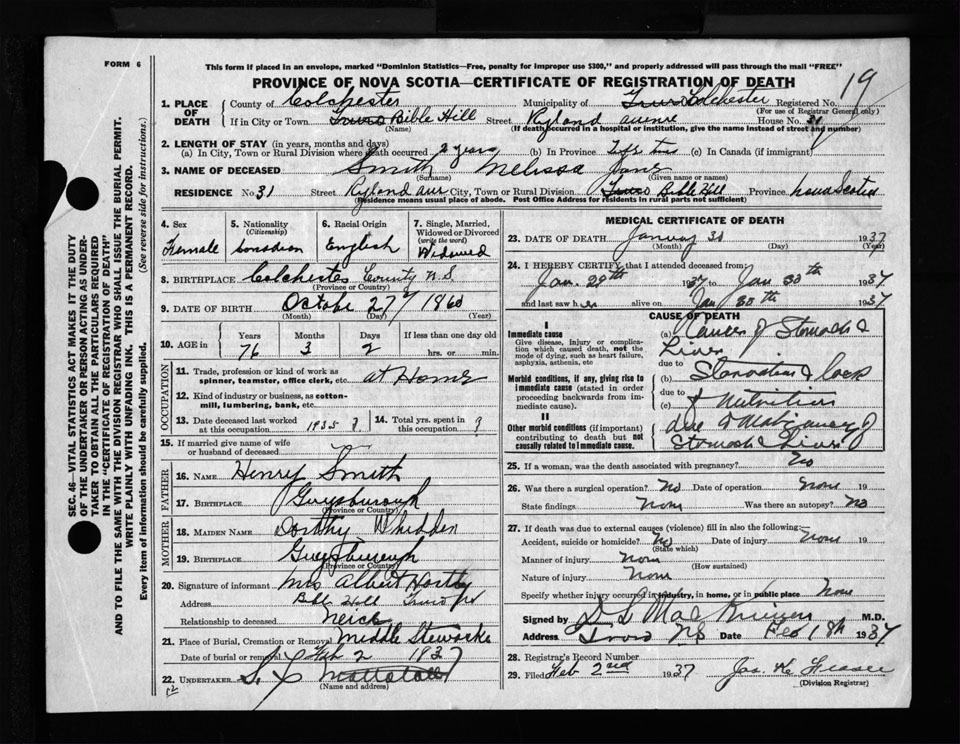 FORM 6
This form if placed in an envelope, marked "Dominion Statistics—Free, penalty for improper use $300," and properly addressed will pass through the mail "FREE"
PROVINCE OF NOVA SCOTIA—CERTIFICATE OF REGISTRATION OF DEATH
19
1. PLACE OF DEATH
County of Colchester Municipality of Colchester Registered No.
(For use of Registrar General only)
If in City or Town Bible Hill Street Ryland avenue House No. 31
(Name) (If death occurred in a hospital or institution, give the name instead of street and number)
2. LENGTH OF STAY (in years, months and days)
(a) In City, Town or Rural Division where death occurred 2 years (b) In Province Life time (c) In Canada (if immigrant)
3. NAME OF DECEASED Smith Melissa Jane
(Surname) (Given name or names)
RESIDENCE No 31 Street Ryland ave City, Town or Rural Division Truro Bible Hill Province Nova Scotia
(Residence means usual place of abode. Post Office Address for residents in rural parts not sufficient)
4. Sex Female
5. Nationality (Citizenship) Canadian
6. Racial Origin English
7. Single, Married, Widowed or Divorced (write the word) Widowed
8. BIRTHPLACE Colchester County N.S
(Province or Country)
9. DATE OF BIRTH October 27 1860
(Month) (Day) (Year)
10. AGE in Years 76 Months 3 Days 2 If less than one day old hrs. or min.
OCCUPATION
11. Trade, profession or kind of work as spinner, teamster, office clerk, etc. at Home
12. Kind of industry or business, as cotton-mill, lumbering, bank, etc.
13. Date deceased last worked at this occupation 1935 ?
14. Total yrs. spent in this occupation ?
15. If married give name of wife or husband of deceased
FATHER
16. NAME Henry Smith
17. BIRTHPLACE Guysborough
(Province or Country)
MOTHER
18. MAIDEN NAME Dorothy Whidden
19. BIRTHPLACE Guysborough
(Province or Country)
20. Signature of informant Mrs Albert
Address Bible Hill Truro NS
Relationship to deceased Neice
21. Place of Burial, Cremation or Removal Middle Stewiacke
Date of burial or removal Feb 2 1937
22. UNDERTAKER
(Name and address)
MEDICAL CERTIFICATE OF DEATH
23. DATE OF DEATH January 30 1937
(Month) (Day) (Year)
24. I HEREBY CERTIFY that I attended deceased from:
Jan. 29th 1937 to Jan 30th 1937
and last saw her alive on Jan 30th 1937
CAUSE OF DEATH
I
Immediate cause
Give disease, injury or complication which caused death, not the mode of dying, such as heart failure, asphyxia, asthenia, etc
(a) Cancer of Stomach & Liver
due to
Morbid conditions, if any, giving rise to immediate cause (stated in order proceeding backwards from immediate cause).
(b) Starvation & lack
due to
(c) of Nutrition
II
Other morbid conditions (if important) contributing to death but not causally related to immediate cause.
due to Malignancy of
Stomach & Liver
25. If a woman, was the death associated with pregnancy? No
26. Was there a surgical operation? No Date of operation None 19
State findings None Was there an autopsy? No
27. If death was due to external causes (violence) fill in also the following:
Accident, suicide or homicide? No Date of injury None 19
(State which)
Manner of injury None
(How sustained)
Nature of injury None
Specify whether injury occurred in industry, in home, or in public place None
Signed by M.D.
Address Truro NS Date Feb 1st 1937
28. Registrar's Record Number
29. Filed Feb 2nd 1937
(Division Registrar)
SEC. 46—VITAL STATISTICS ACT MAKES IT THE DUTY OF THE UNDERTAKER OR PERSON ACTING AS UNDERTAKER TO OBTAIN ALL THE PARTICULARS REQUIRED IN THE "CERTIFICATE OF REGISTRATION OF DEATH" AND TO FILE THE SAME WITH THE DIVISION REGISTRAR WHO SHALL ISSUE THE BURIAL PERMIT.
WRITE PLAINLY WITH UNFADING INK. THIS IS A PERMANENT RECORD.
Every item of information should be carefully supplied. (See reverse side for instructions.)